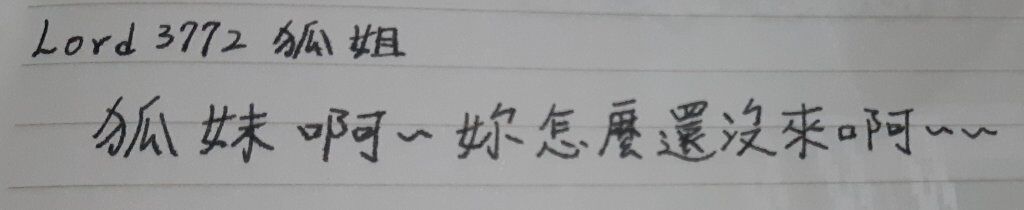 Lord 3772 狐姐
狐妹啊~妳怎麼還沒來啊~~